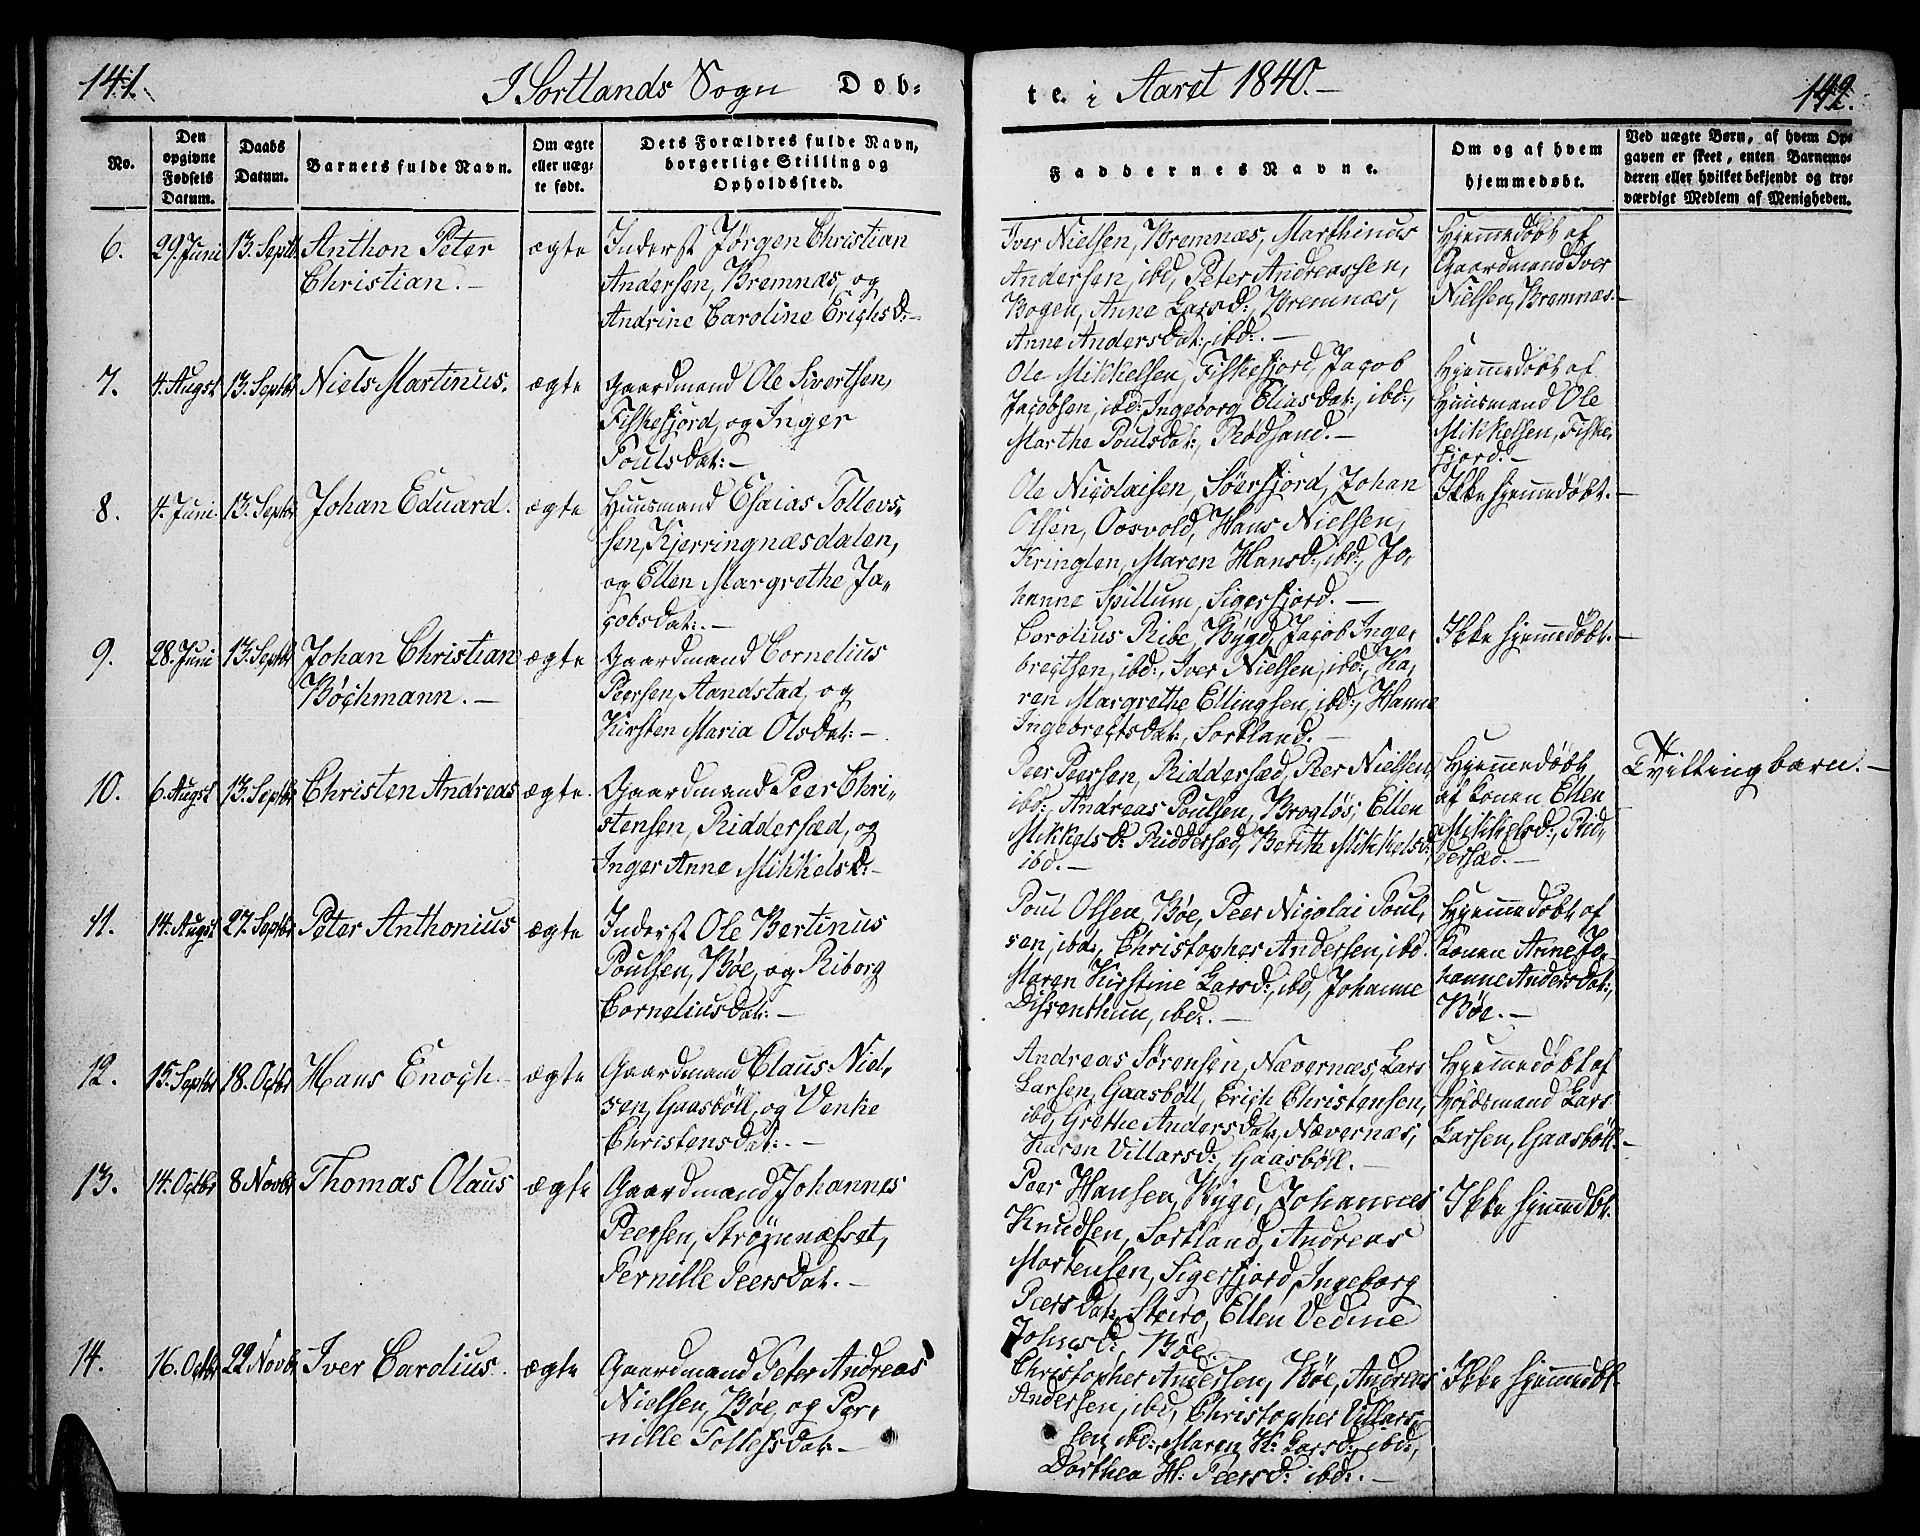 141.
I Sortlands Sogn Døb-
te. i Aaret 1840.-
142.
No.
Den
opgivne
Fødsels
Datum.
Daabs
Datum.
Barnets fulde Navn.
Om ægte
eller uæg-
te født.
Dets Forældres fulde Navn,
borgerlige Stilling og
Opholdssted.
Faddernes Navne.
Om og af hvem
hjemmedøbt.
Ved uægte Børn, af hvem Op-
gaven er skeet, enten Barnemo-
deren eller hvilket bekjendt og tro-
værdigt Medlem af Menigheden.
6.
29. Juni
13. Septbr
Anthon Peter
Christian.-
ægte
Inderst Jørgen Christian
Andersen, Bremnæs, og
Andrine Caroline Erichsd:-
Iver Nielsen, Bremnæs, Marthinus
Andersen, ibd, Peter Andreassen,
Bogen, Anne Larsd: Bremnæs,
Anne Andersdat:, ibd:.-
Hjemmedøbt af
Gaardmand Iver
Nielsen, Bremnæs.-
7.
4. Augst
13. Septbr
Niels Martinus.
ægte
Gaardmand Ole Sivertsen,
Fiskefjord, og Inger
Poulsdat:-
Ole Mikkelsen, Fiskefjord, Jacob
Jacobsen, ibd: Ingeborg Eliasdat:, ibd:,
Marthe Poulsdat:, Rødsand.-
Hjemmedøbt af
Huusmand Ole
Mikkelsen, Fiske-
fjord.-
8.
4. Juni
13. Septbr
Johan Eduard.
ægte
Huusmand Esaias Tollevs-
sen, Kjerringnæsdalen,
og Ellen Margrethe Ja-
cobsdat:.-
Ole Nicolaisen, Sørfjord, Johan
Olsen, Oosvold, Hans Nielsen,
Kringlen, Maren Hansd:, ibd:, Jo-
hanne Spillum, Sigerfjord.-
Ikke hjemmedøbt.-
9.
28. Juni
13. Septbr
Johan Christian
Bøchmann.-
ægte
Gaardmand Cornelius
Peersen, Aandstad, og
Kirsten Maria Olsdat:-
Carolius Ribe, Bÿgd, Jacob Inge-
breitsen, ibd:, Iver Nielsen, ibd:, Ka-
ren Margrethe Ellingsen, ibd:, Hanne
Ingebregtsdat:, Sortland.-
Ikke hjemmedøbt.-
10.
6. Augst
13. Septbr
Christen Andreas
ægte.
Gaardmand Peer Chri-
stensen, Riddersæd, og
Inger Anne Mikkelsd:-
Peer Peersen, Riddersæd, Peer Nielsen,
ibd:, Andreas Poulsen, Brogløs, Ellen
Mikkelsd: Riddersæd, Berith Mikkelsd:
ibd.-
Hjemmedøbt
af Konen Ellen
Mikkelsd:, Rid-
dersæd.-
Tvillingbarn.-
11.
14. Augst
27. Septbr
Peter Anthonius
ægte
Inderst Ole Bertinus
Poulsen, Bøe, og Riborg
Corneliusdat:-
Poul Olsen, Bøe, Peer Nicolai Poul-
sen, ibd:, Christopher Andersen, ibd.
Maren Kirstine Larsd:, ibd, Johanne
Dissenthun, ibd:.-
Hjemmedøbt af
Konen Anne Jo-
hanne Andersdat:,
Bøe.-
12.
15. Septbr
18. Octbr
Hans Enoch.-
ægte
Gaardmand Claus Niel-
sen, Gaasbøll, og Venke
Christensdat:.-
Andreas Sørensen, Nævernæs, Lars
Larsen, Gaasbøll, Erich Christensen,
ibd, Grethe Andersdat:, Nævernæs,
Karen Villarsd: Gaasbøll.-
Hjemmedøbt af
Lars
Larsen, Gaasbøll.-
13.
14. Octbr
8 Novbr
Thomas Olaus
ægte
Gaardmand Johannes
Peersen, Strømnæsset,
Pernille Peersdat.-
Peer Hansen, Bÿgd, Johannes
Knudsen, Sortland, Andreas
Mortensen, Sigerfjord, Ingeborg
Peersdat:, Steiro, Ellen Vedine
Johnsd: Bøe.
Ikke hjemmedbt.
14.
16. Octbr
22 Novbr
Iver Carolius.
ægte
Gaardmand Peter Andreas
Nielsen, Bøe, og Per-
nille Tollefsdat:-
Christopher Andersen, Bøe, Andreas
Andersen, ibd, Christopher Villars-
sen, ibd:, Maren K: Larsd: ibd:,
Dorthea H: Peersd: ibd:.-
Ikke hjemmedbt.